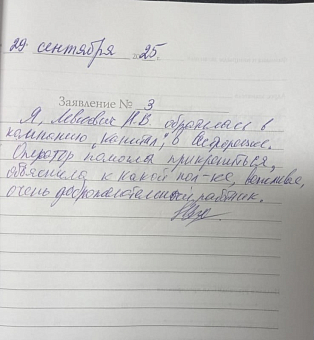 29 сентября 2025 г.
Заявление № 3
Я, Левкович Н.В. обратилась в
компанию "Капитал", в Запорожье.
Оператор помогла прикрепиться,
объяснила к какой пол-ке, вежливая,
очень доброжелательный работник.